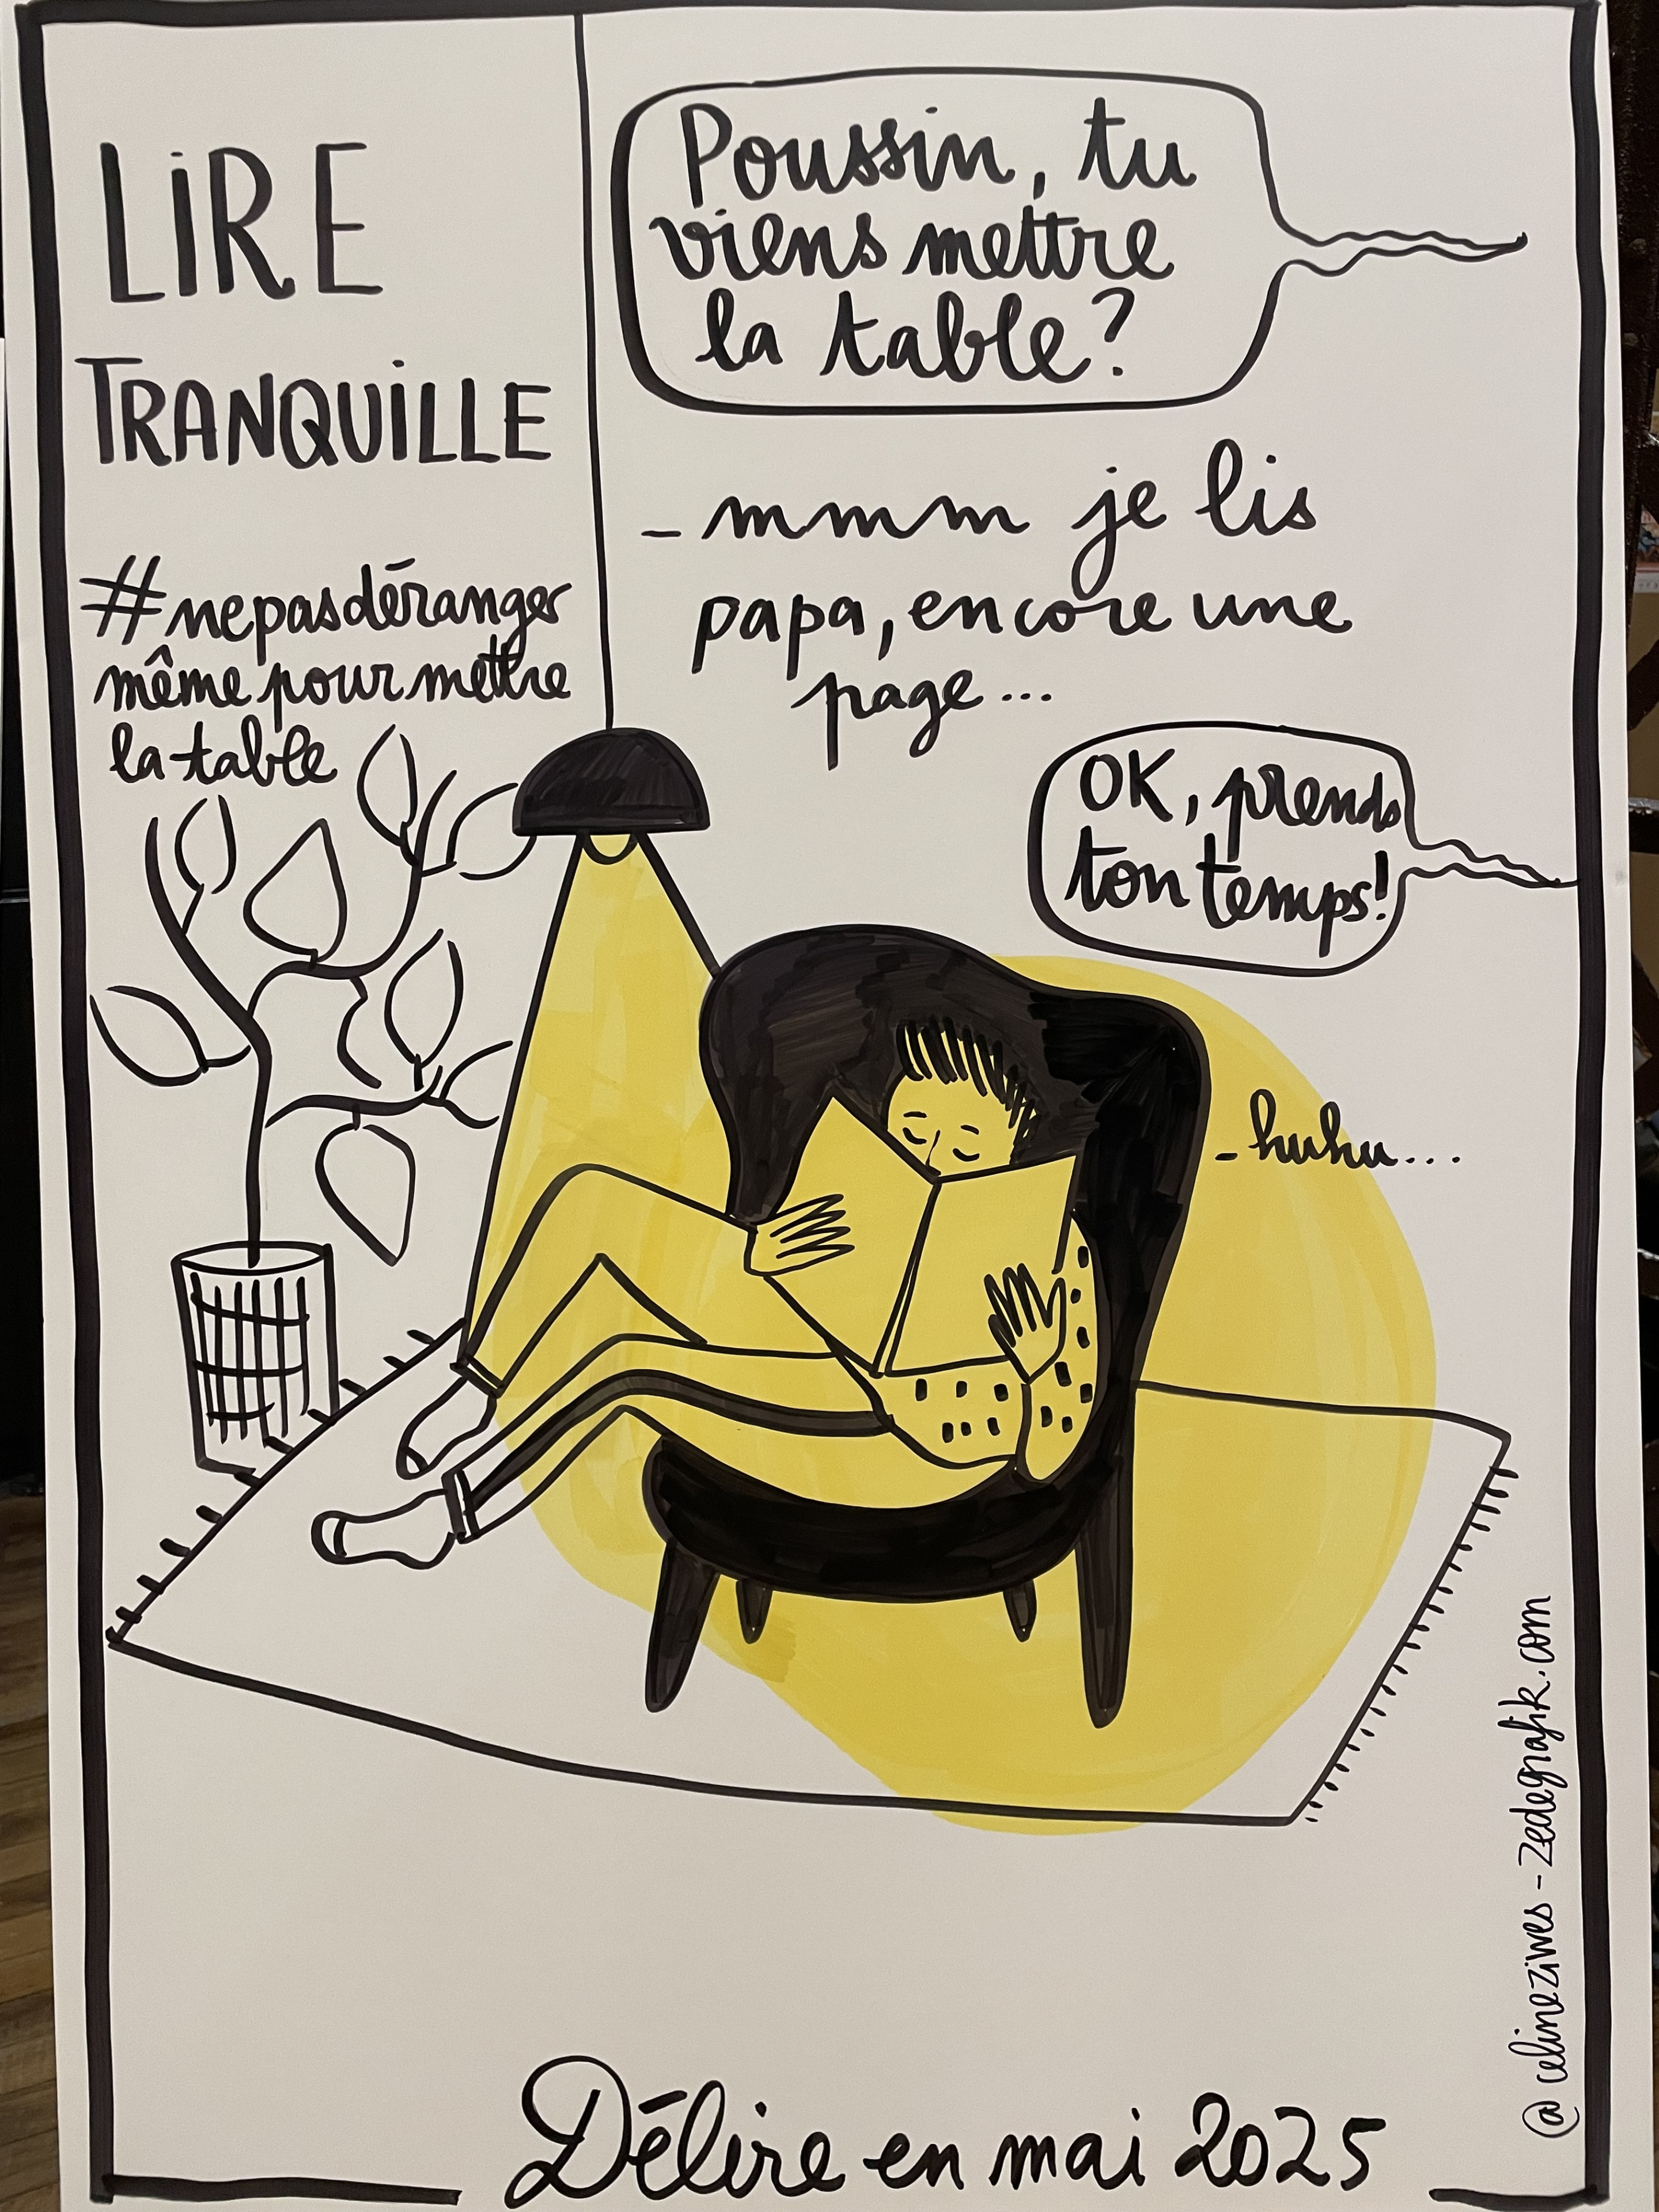 LIRE
TRANQUILLE
#nepasdéranger
même pour mettre
la table
Poussin, tu
viens mettre
la table?
- mmm je lis
papa, encore une
page...
OK, prends
ton temps!
- huhu....
@celineziwes - zedegrafik.com
Délire en mai 2025